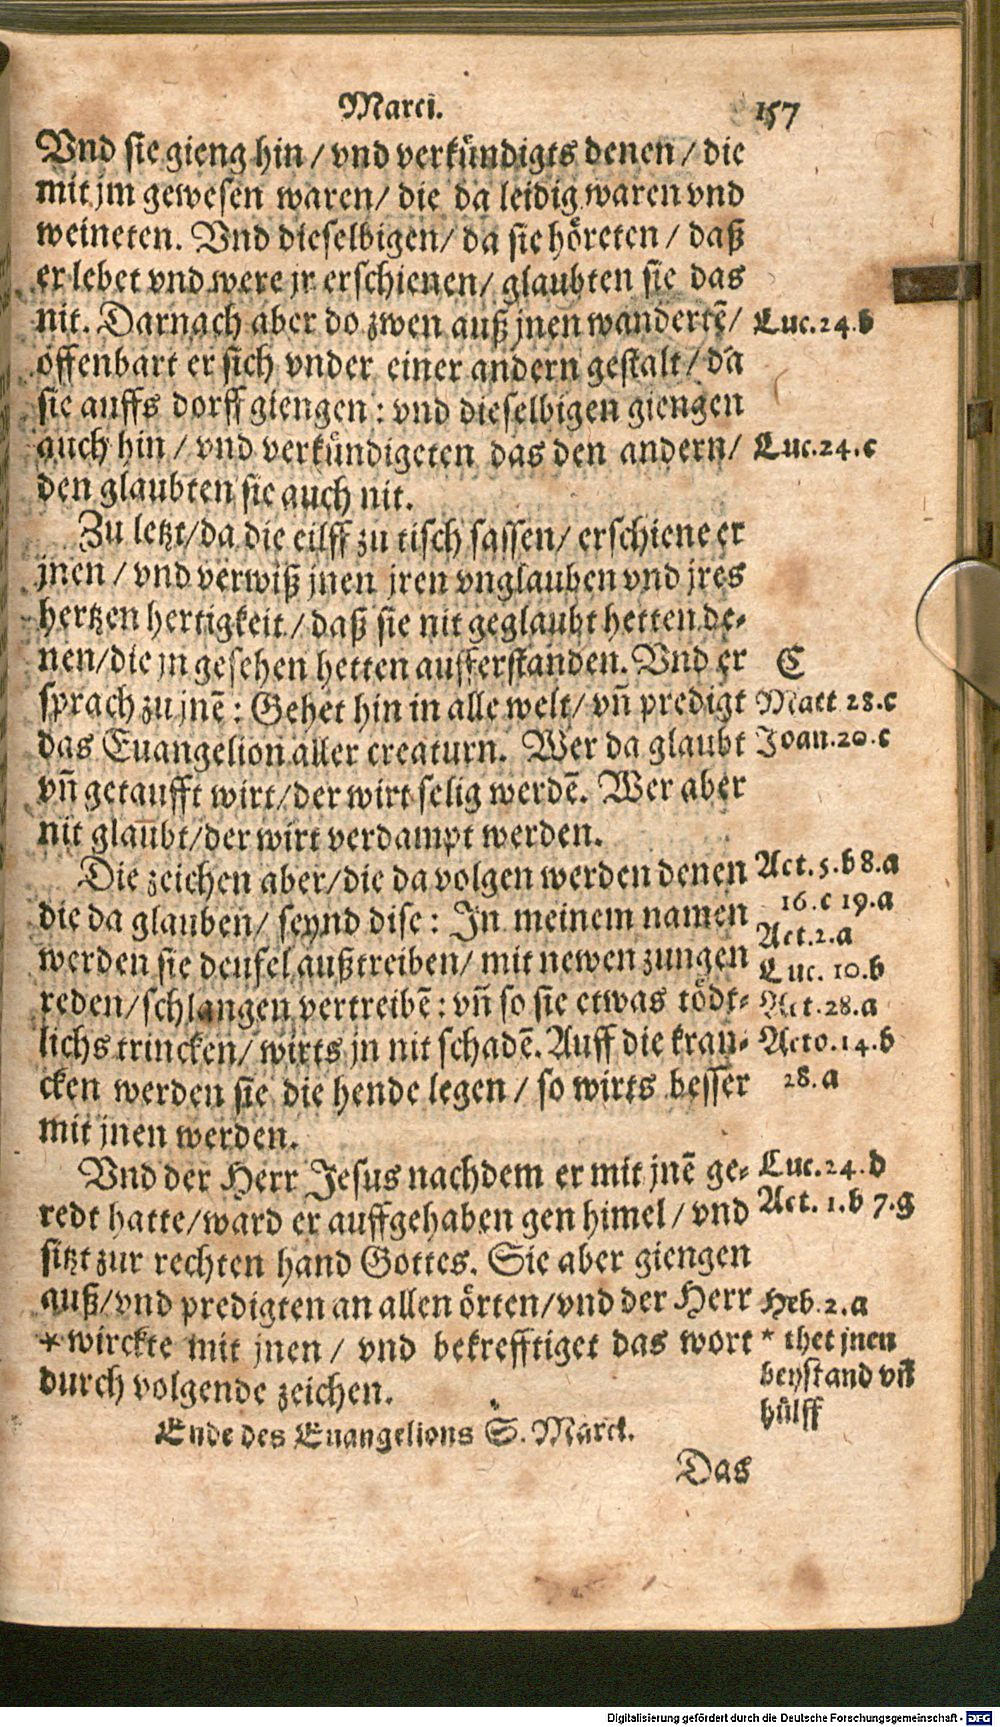 Marci. 157
Vnd sie gieng hin / vnd verkündigts denen / die
mit jm gewesen waren / die da leidig waren vnd
weineten. Vnd dieselbigen / da sie höreten / daß
er lebet vnd were jr erschienen / glaubten sie das
nit. Darnach aber do zwen auß jnen wandertē / Luc.24.b
offenbart er sich vnder einer andern gestalt / da
sie auffs dorff giengen : vnd dieselbigen giengen
auch hin / vnd verkündigeten das den andern / Luc.24.c
den glaubten sie auch nit.
Zu letzt / da die eilff zu tisch sassen / erschiene er
jnen / vnd verwiß jnen jren vnglauben vnd jres
hertzen hertigkeit / daß sie nit geglaubt hetten de-
nen / die jn gesehen hetten aufferstanden. Vnd er C
sprach zu jnē : Gehet hin in alle welt / vñ predigt Matt 28.c
das Euangelion aller creaturn. Wer da glaubt Joan.20.c
vñ getaufft wirt / der wirt selig werdē. Wer aber
nit glaubt / der wirt verdampt werden.
Die zeichen aber / die da volgen werden denen Act.5.b 8.a
die da glauben / seynd dise : In meinem namen 16.c 19.a
werden sie deufel außtreiben / mit newen zungen Act.2.a
reden / schlangen vertreibē : vñ so sie etwas tödt- Luc. 10.b
lichs trincken / wirts jn nit schadē. Auff die kran- Act.28.a
cken werden sie die hende legen / so wirts besser Acto.14.b
mit jnen werden. 28.a
Vnd der Herr Jesus nachdem er mit jnē ge- Luc.24.d
redt hatte / ward er auffgehaben gen himel / vnd Act. 1.b 7.g
sitzt zur rechten hand Gottes. Sie aber giengen
auß / vnd predigten an allen örten / vnd der Herr Heb.2.a
*wirckte mit jnen / vnd bekrefftiget das wort * thet jnen
durch volgende zeichen. beystand vñ
hülff
Ende des Euangelions S. Marci.
Das
Digitalisierung gefördert durch die Deutsche Forschungsgemeinschaft - DFG